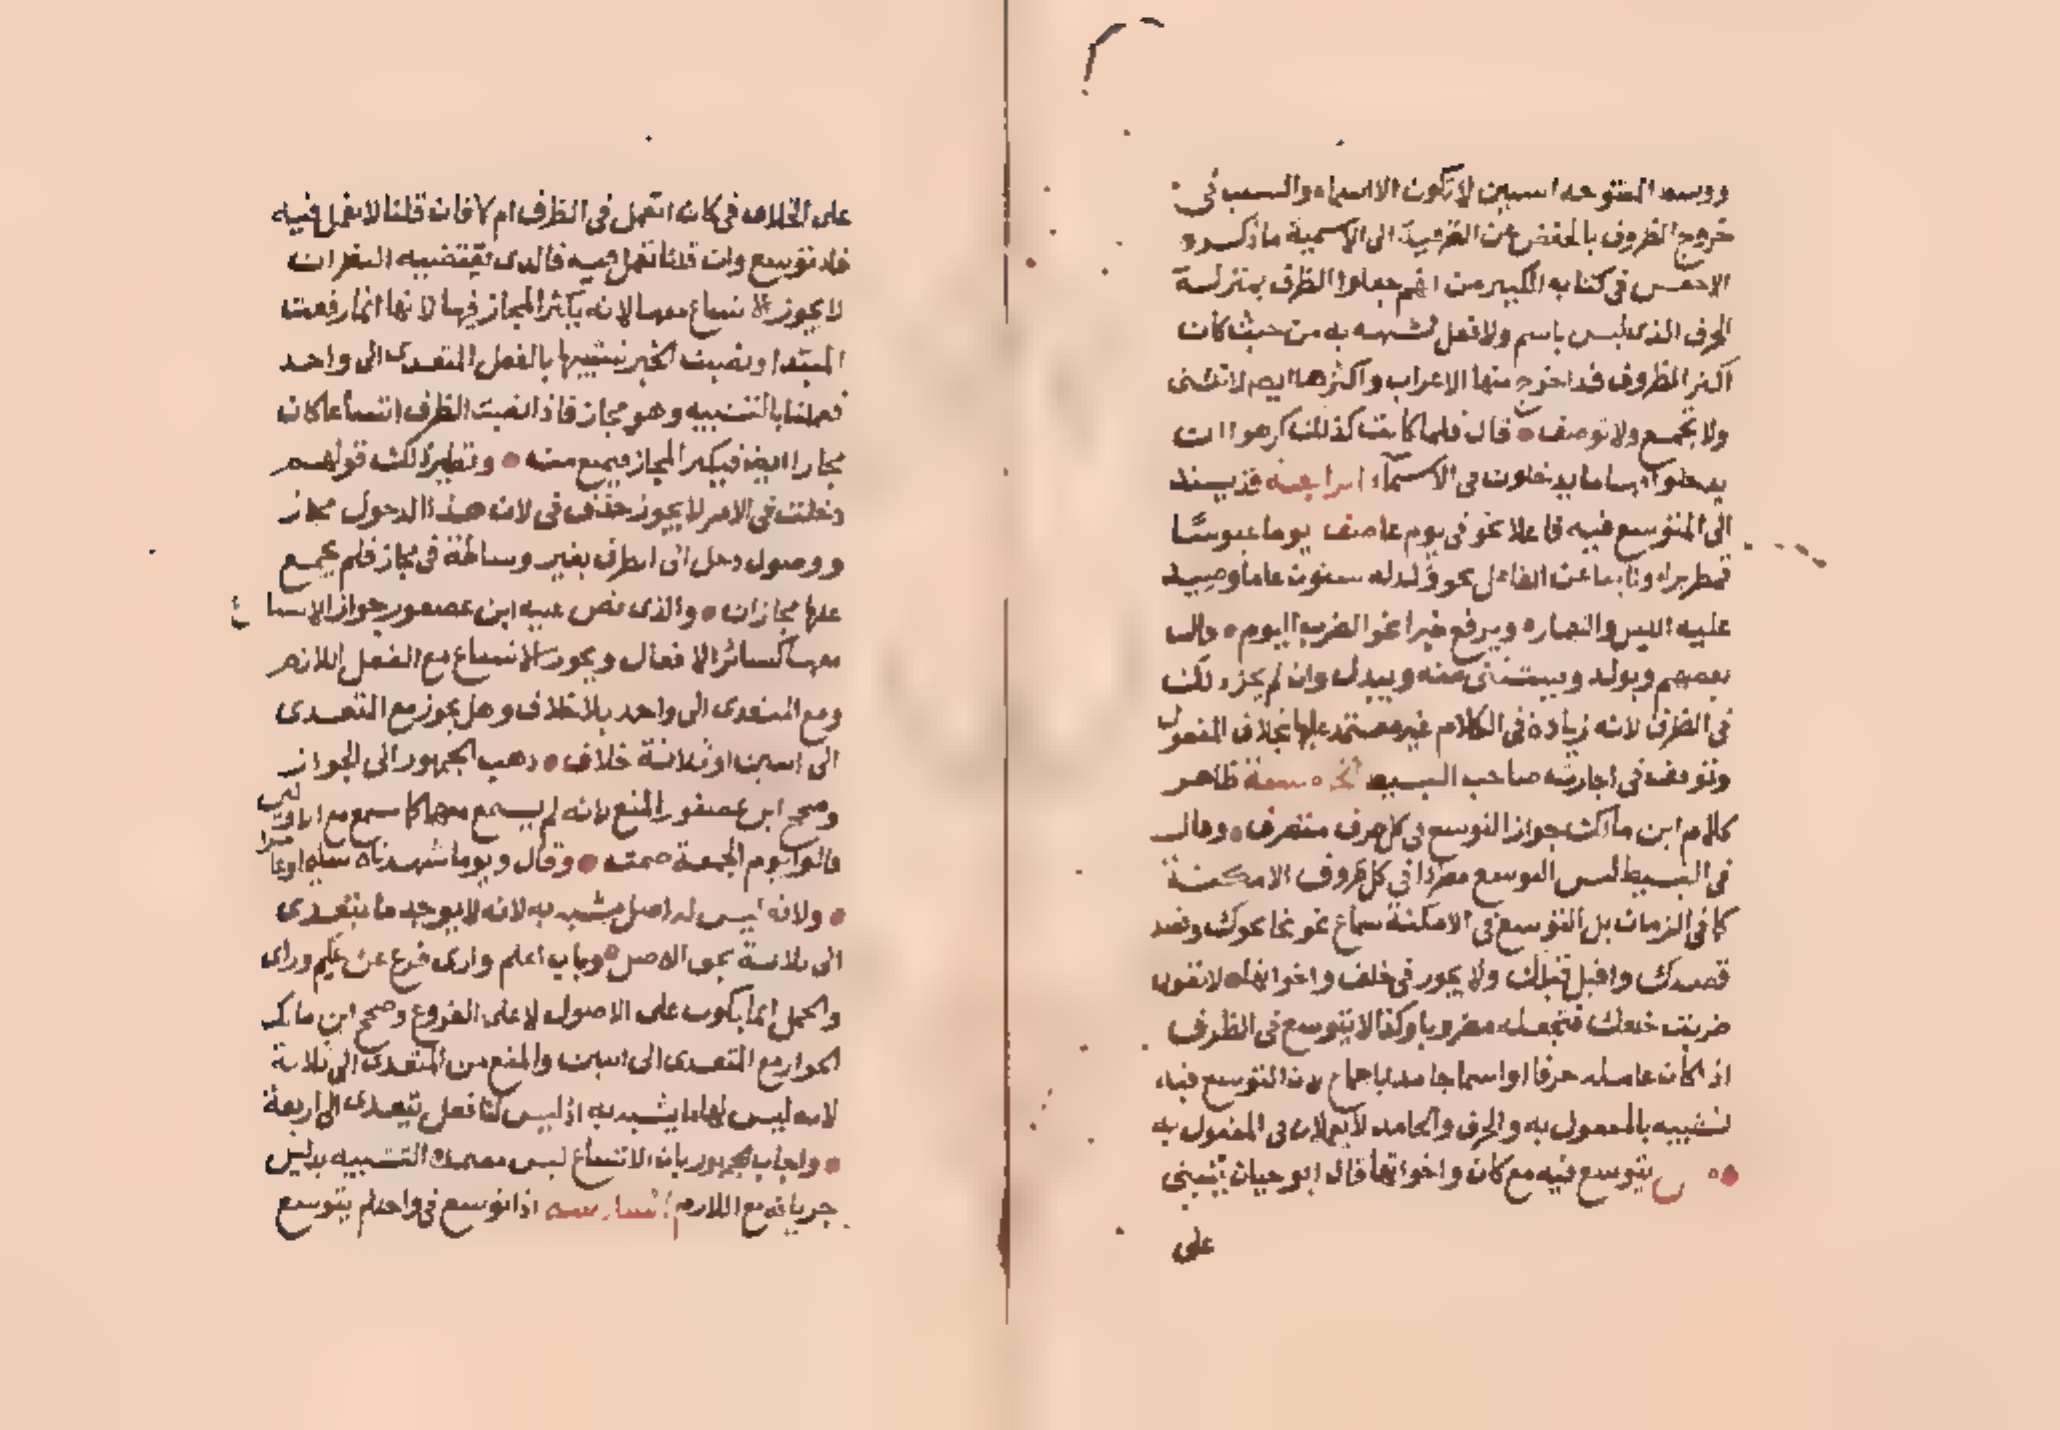 ووسط المفتوحه اسمين لا تكون الا اسماء والسبب في
خروج الظروف بالخفض عن الظرفية الى الاسمية ما ذكره
الاخفش في كتابه الكبير من انهم جعلوا الظرف بمنزلة
الحرف الذى ليس باسم ولا فعل لشبهه به من حيث كان
اكثر الظروف قد اخرج منها الاعراب واكثرها ايضا لا تثنى
ولا تجمع ولا توصف قال فلما كانت كذلك كرهوا ان
يدخلوا فيها ما يدخلون في الاسماء الرابعة قد يسند
الى المتوسع فيه فاعلا نحو في يوم عاصف يوما عبوسًا
قمطريرا ونايبا عن الفاعل نحو ولد له ستون عاما وصيد
عليه الليل والنهار ويرفع خبرا نحو الضرب اليوم وقال
بعضهم ويولد ويستثنى منه ويبدل وان لم يجز ذلك
في الظرف لانه زيادة في الكلام غير معتمد عليها بخلاف المفعول
وتوقف في اجازته صاحب البسيط الخامسة ظاهر
كلام ابن مالك جواز التوسع في كل ظرف متصرف وقال
في البسيط ليس التوسع مطردا في كل ظروف الامكنة
كما في الزمان بل التوسع في الامكنة سماع نحو نحا نحوك وقصد
قصدك واقبل قبلك ولا يجوز في خلف واخواتها لا تقول
ضربت خلفك فتجعله مضروبا وكذا لا يتوسع في الظرف
اذ كان عامله حرفا او اسما جامدا باجماع لان التوسع فيه
تشبيه بالمفعول به والحرف والجامد لا يعملان في المفعول به
يتوسع فيه مع كان واخواتها قال ابو حيان يبنى
على
على الخلاف في كان اتعمل في الظرف ام لا فان قلنا لا تعمل فيه
فلا توسع وان قلنا تعمل فيه فالذى يقتضيه النظر ان
لا يجوز الاتساع معها لانه يكثر المجاز فيها لانها انما رفعت
المبتدا ونصبت الخبر تشبيها بالفعل المتعدى الى واحد
فعملها بالتشبيه وهو مجاز فاذا نصبت الظرف اتساعا كان
مجازا ايضا فيكثر المجاز فيمنع منه ونظير ذلك قولهم
دخلت في الامر لا يجوز حذف في لان هذا الدخول مجاز
ووصول دخل الى الظرف بغير وساطة في مجاز فلم يجمع
عليها مجازان والذى نص عليه ابن عصفور جواز الاتساع
معها كسائر الافعال ويجوز الاتساع مع الفعل اللازم
ومع المتعدى الى واحد بلا خلاف وهل يجوز مع المتعدى
الى اثنين او ثلاثة خلاف ذهب الجمهور الى الجواز
وصحح ابن عصفور المنع لانه لم يسمع معهما كما سمع مع الاولين
قالوا يوم الجمعة صمته وقال ويوما شهدناه سليما وعامرا
ولانه ليس له اصل يشبه به لانه لا يوجد ما يتعدى
الى ثلاثة بحق الاصل وباب اعلم وارى فرع عن علم وراى
والحمل انما يكون على الاصول لا على الفروع وصحح ابن مالك
الجواز مع المتعدى الى اثنين والمنع من المتعدى الى ثلاثة
لانه ليس لها ما يشبه به اذ ليس لنا فعل يتعدى الى اربعة
واجاب الجمهور بان الاتساع ليس معتمده التشبيه بدليل
جريانه مع اللازم السادسة اذا توسع في واحد لم يتوسع